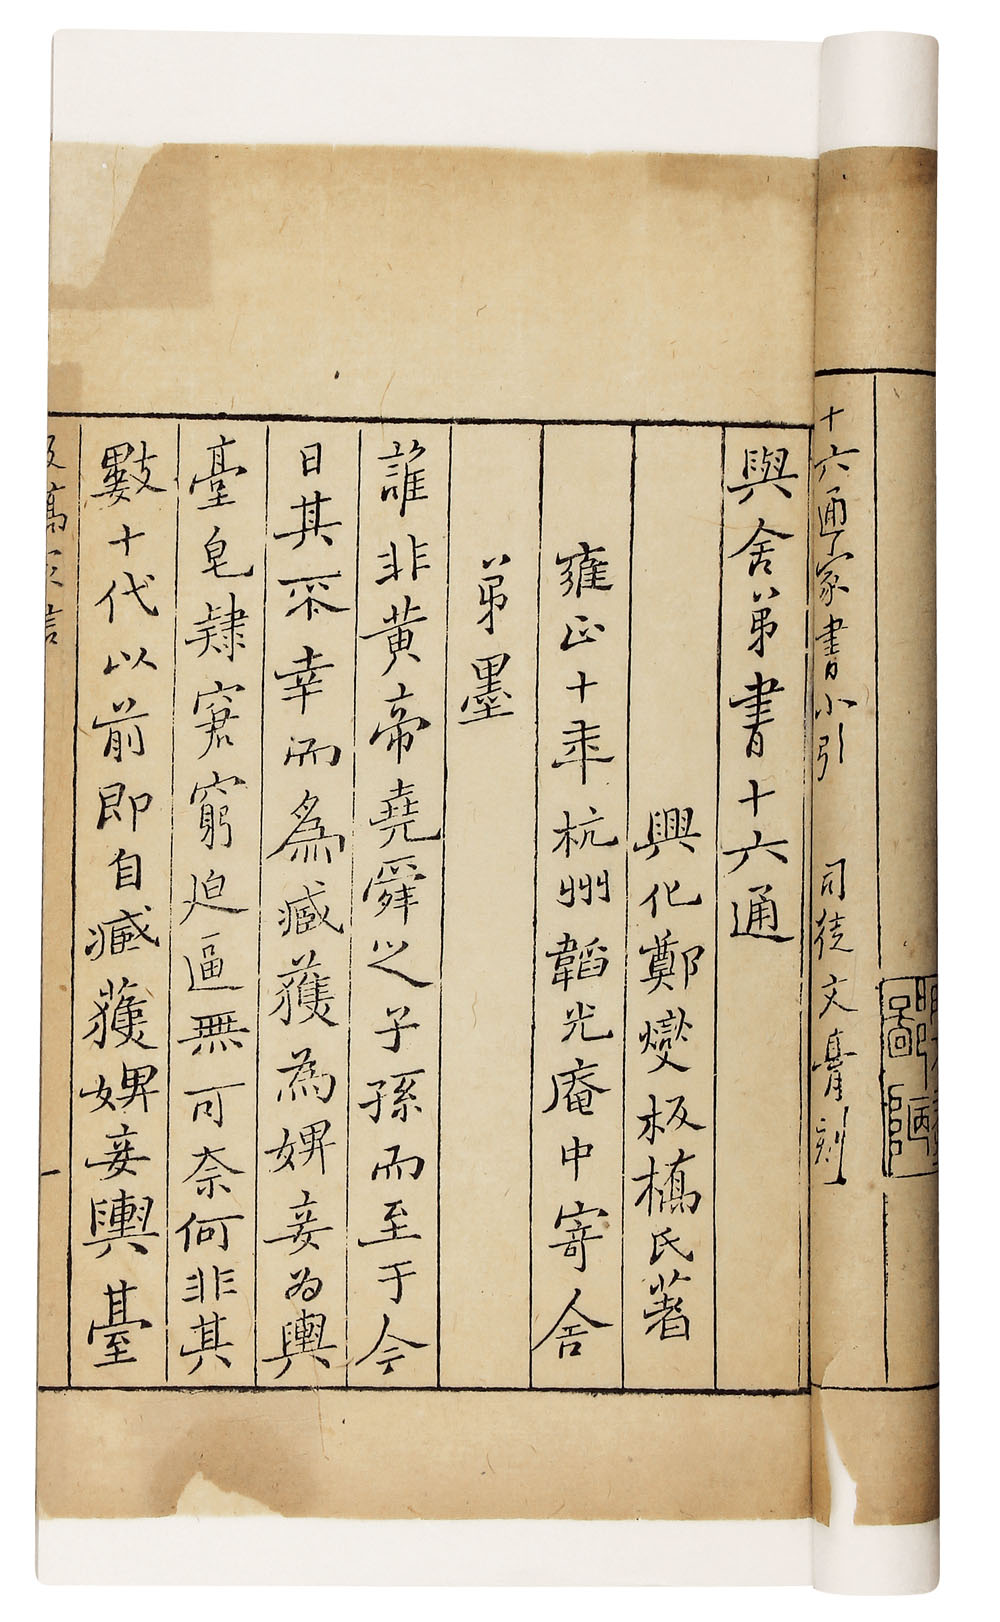 十六通家書小引　司徒文膏刻
與舍弟書十六通
興化鄭燮板橋氏著
雍正十年杭州韜光庵中寄舍
弟墨
誰非黃帝堯舜之子孫而至于今
日其不幸而為臧獲為婢妾為輿
臺皂隸窘窮迫逼無可奈何非其
數十代以前即自臧獲婢妾輿臺